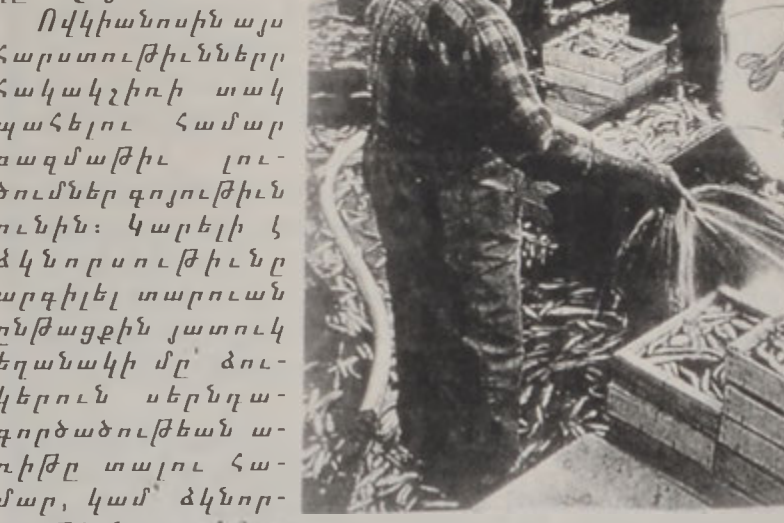 Ովկիանոսին այս
հարստութիւնները
հակակշիռի տակ
պահելու համար
բազմաթիւ լու-
ծումներ գոյութիւն
ունին։ Կարելի է
ձկնորսութիւնը
արգիլել տարուան
ընթացքին յատուկ
եղանակի մը ձու-
կերուն սերնդա-
գործածութեան ա-
ռիթը տալու հա-
մար, կամ ձկնոր-